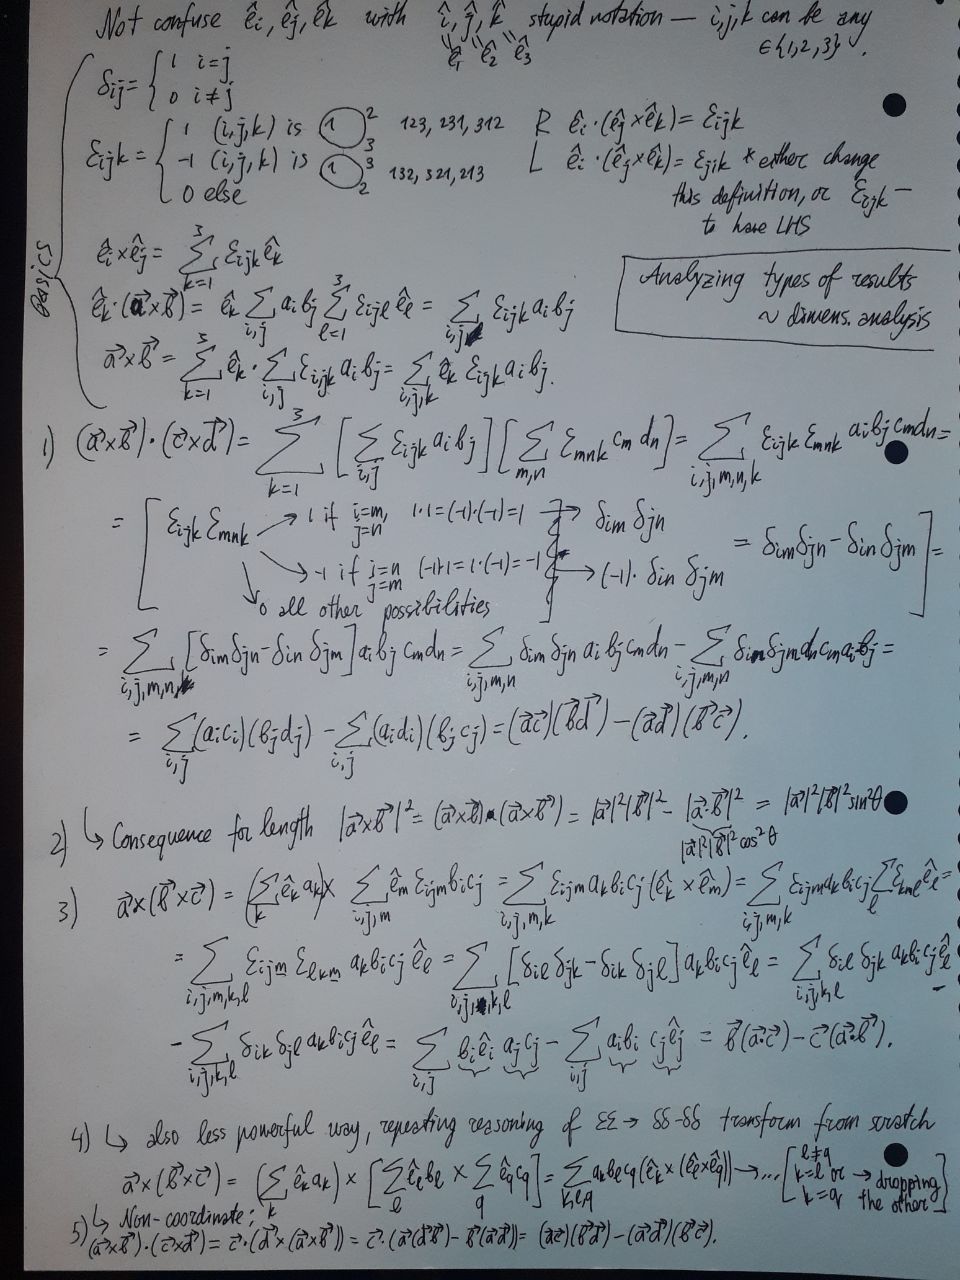 Not confuse êi, êj, êk with î, ĵ, k̂ stupid notation — i,j,k can be any
ê1 ê2 ê3 ∈{1,2,3}.
Basics
δij = { 1 i=j
0 i≠j
εijk = { 1 (i,j,k) is 1 2 3 123, 231, 312 R êi·(êj×êk) = εijk
-1 (i,j,k) is 1 3 2 132, 321, 213 L êi·(êj×êk) = εjik * either change
0 else this definition, or εijk –
to have LHS
êi×êj = ∑k=1^3 εijk êk
Analyzing types of results
~ dimens. analysis
êk·(a⃗×b⃗) = êk ∑i,j ai bj ∑l=1^3 εijl êl = ∑i,j εijk ai bj
a⃗×b⃗ = ∑k=1^3 êk · ∑i,j εijk ai bj = ∑i,j,k êk εijk ai bj.
1) (a⃗×b⃗)·(c⃗×d⃗) = ∑k=1^3 [∑i,j εijk ai bj] [∑m,n εmnk cm dn] = ∑i,j,m,n,k εijk εmnk ai bj cm dn =
= [ εijk εmnk → 1 if i=m, j=n 1·1=(-1)·(-1)=1 → δim δjn
→ -1 if i=n j=m (-1)·1=1·(-1)=-1 → (-1)· δin δjm = δim δjn – δin δjm ] =
→ 0 all other possibilities
= ∑i,j,m,n [δim δjn – δin δjm] ai bj cm dn = ∑i,j,m,n δim δjn ai bj cm dn – ∑i,j,m,n δin δjm dn cm ai bj =
= ∑i,j (ai ci)(bj dj) – ∑i,j (ai di)(bj cj) = (a⃗c⃗)(b⃗d⃗) – (a⃗d⃗)(b⃗c⃗).
2) ↳ Consequence for length |a⃗×b⃗|² = (a⃗×b⃗)·(a⃗×b⃗) = |a⃗|²|b⃗|² – |a⃗·b⃗|² = |a⃗|²|b⃗|² sin²θ
|a⃗|²|b⃗|² cos²θ
3) a⃗×(b⃗×c⃗) = (∑k êk ak) × ∑i,j,m êm εijm bi cj = ∑i,j,m,k εijm ak bi cj (êk×êm) = ∑i,j,m,k εijm ak bi cj ∑l εkml êl =
= ∑i,j,m,k,l εijm εlkm ak bi cj êl = ∑i,j,k,l [δil δjk – δik δjl] ak bi cj êl = ∑i,j,k,l δil δjk ak bi cj êl –
– ∑i,j,k,l δik δjl ak bi cj êl = ∑i,j bi êi aj cj – ∑i,j ai bi cj êj = b⃗(a⃗·c⃗) – c⃗(a⃗·b⃗).
4) ↳ also less powerful way, repeating reasoning of εε → δδ-δδ transform from scratch
a⃗×(b⃗×c⃗) = (∑k êk ak) × [∑l êl bl × ∑q êq cq] = ∑k,l,q ak bl cq (êk×(êl×êq)) → ... [ l≠q k=l or k=q → dropping the other ]
5) ↳ Non-coordinate:
(a⃗×b⃗)·(c⃗×d⃗) = c⃗·(d⃗×(a⃗×b⃗)) = c⃗·(a⃗(d⃗b⃗) – b⃗(a⃗d⃗)) = (a⃗c⃗)(b⃗d⃗) – (a⃗d⃗)(b⃗c⃗).